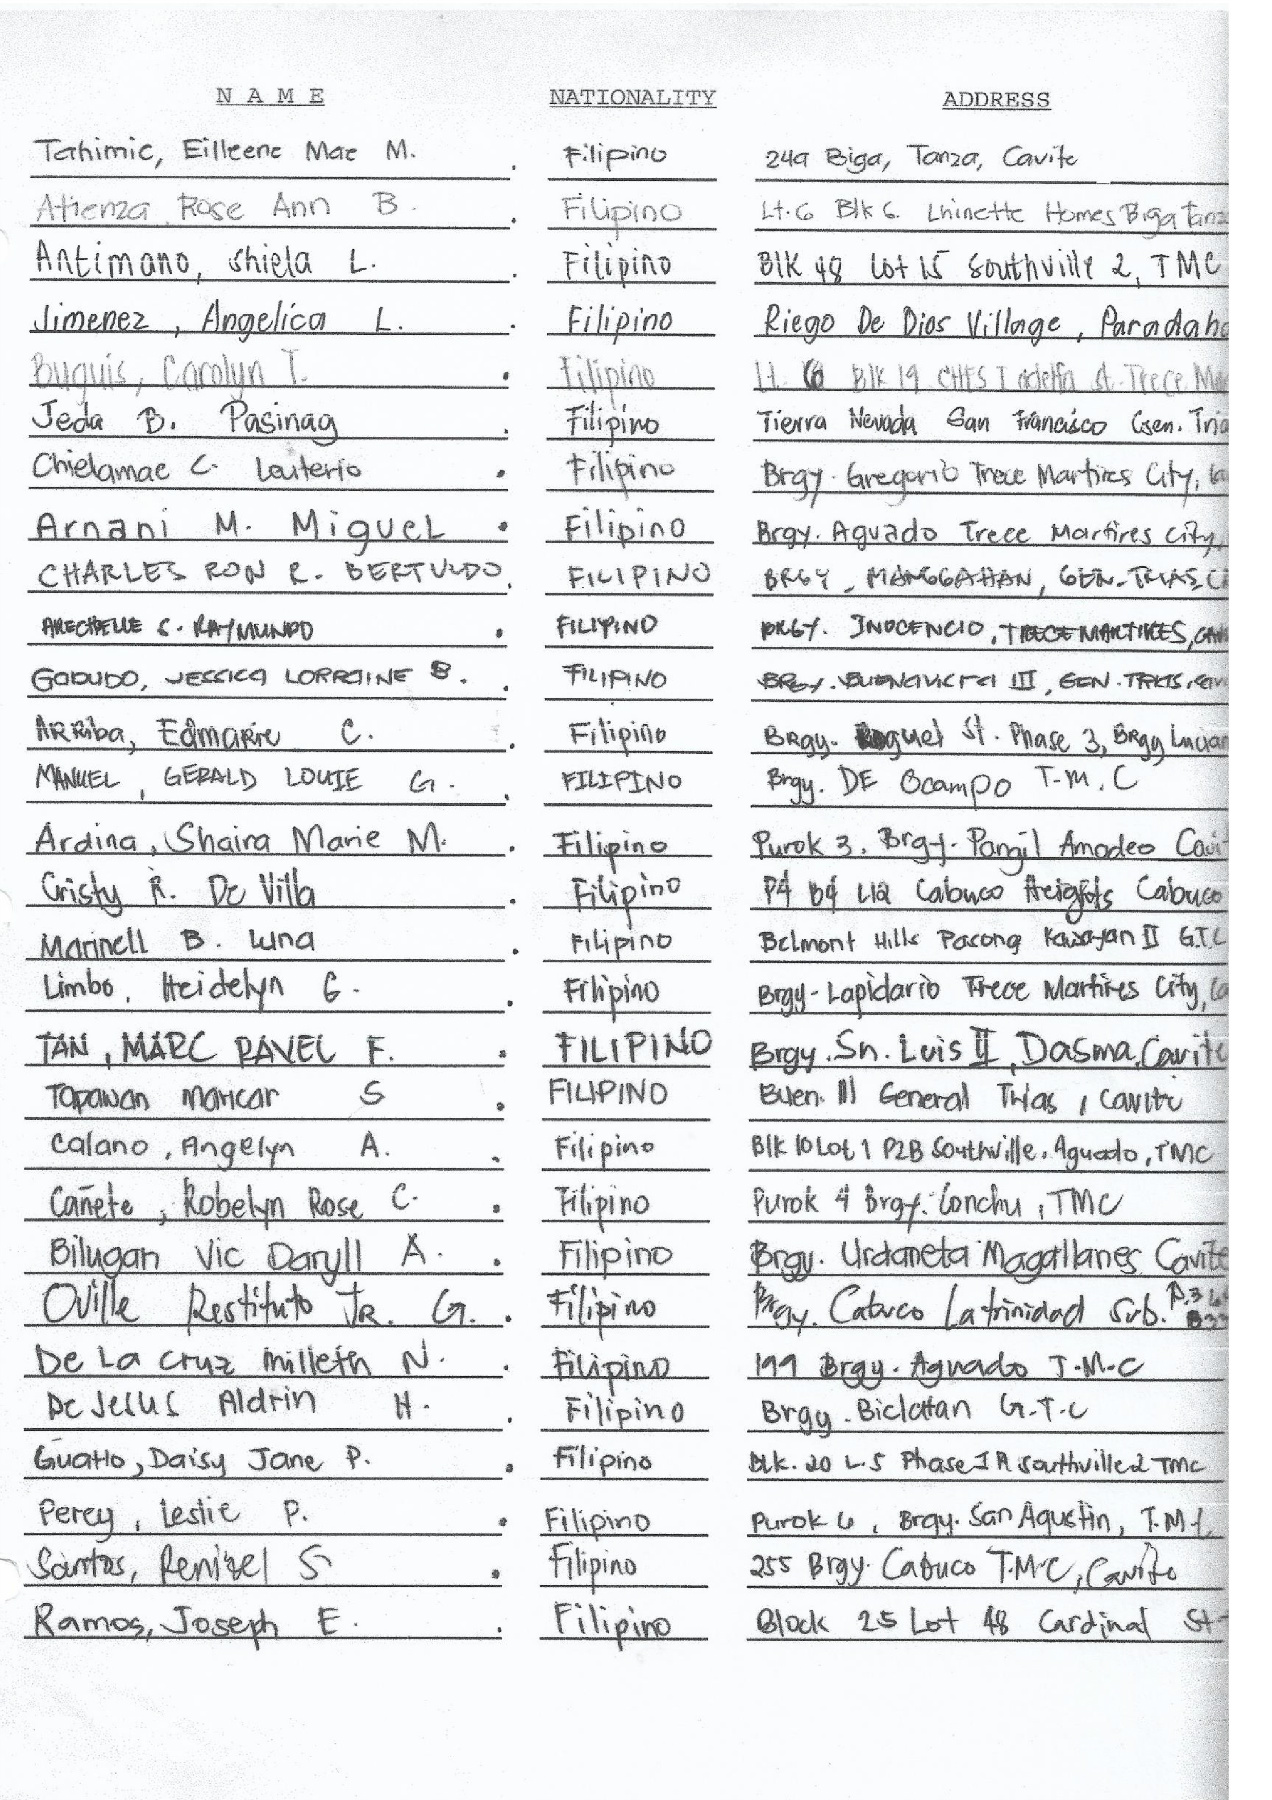 NAME NATIONALITY ADDRESS
Tahimic, Eilleene Mae M. . Filipino 249 Biga, Tanza, Cavite
Atienza Rose Ann B. . Filipino Lt. 6 Blk 6. Lhinette Homes Biga Tanz
Antimano, Shiela L. . Filipino Blk 48 Lot 15 Southville 2, TMC
Jimenez, Angelica L. . Filipino Riego De Dios Village, Paradaho
Buguis, Carolyn T. . Filipino Lt. 6 Blk 19 CHES I adelfa st. Trece Ma
Jeda B. Pasinag . Filipino Tierra Nevada San Francisco Gen. Tria
Chielamae C. Lauterio . Filipino Brgy. Gregorio Trece Martires City,
Arnani M. Miguel . Filipino Brgy. Aguado Trece Martires City,
CHARLES RON R. BERTULDO . FILIPINO BRGY. MANGGAHAN, GEN. TRIAS, C
ARECHELLE S. RAYMUNDO . FILIPINO BRGY. INOCENCIO, TRECE MARTIRES, CAV
GODUDO, JESSICA LORRAINE B. . FILIPINO BRGY. BUENAVISTA III, GEN. TRIAS,
ARRiba, Edmarie C. . Filipino BRgy. St. Phase 3, BRgy Lucian
MANUEL, GERALD LOUIE G. . FILIPINO Brgy. DE Ocampo T.M.C
Ardina, Shaira Marie M. . Filipino Purok 3, Brgy. Pangil Amadeo Cavit
Cristy R. De Villa Filipino P4 B4 L12 Cabuco Heights Cabuco
Marinell B. Luna . Filipino Belmont Hills Pasong Kawayan II G.T.C
Limbo, Heidelyn G. . Filipino Brgy. Lapidario Trece Martires City, Ca
TAN, MARC RAVEL F. . FILIPINO Brgy. Sn. Luis II, Dasma, Cavite
Tapawan Maricar S . FILIPINO Buen. III General Trias, Cavite
Calano, Angelyn A. . Filipino Blk 10 Lot 1 P2B Southville, Aguado, TMC
Cañete, Robelyn Rose C. . Filipino Purok 4 Brgy. Conchu, TMC
Bilugan Vic Daryll A. . Filipino Brgy. Urdaneta Magallanes Cavite
Oville Restituto JR. G. . Filipino Brgy. Cabuco Latrinidad Sub. P.3
De La Cruz Milleth N. . Filipino 199 Brgy. Aguado T.M.C
De Jesus Aldrin H. . Filipino Brgy. Biclatan G.T.C
Guatto, Daisy Jane P. . Filipino Blk. 20 L.5 Phase 1A Southville 2 TMC
Percy, Leslie P. . Filipino Purok 6, Brgy. San Agustin, T.M.C
Santos, Renizel S . Filipino 255 Brgy. Cabuco T.M.C, Cavite
Ramos, Joseph E. . Filipino Block 25 Lot 48 Cardinal St.